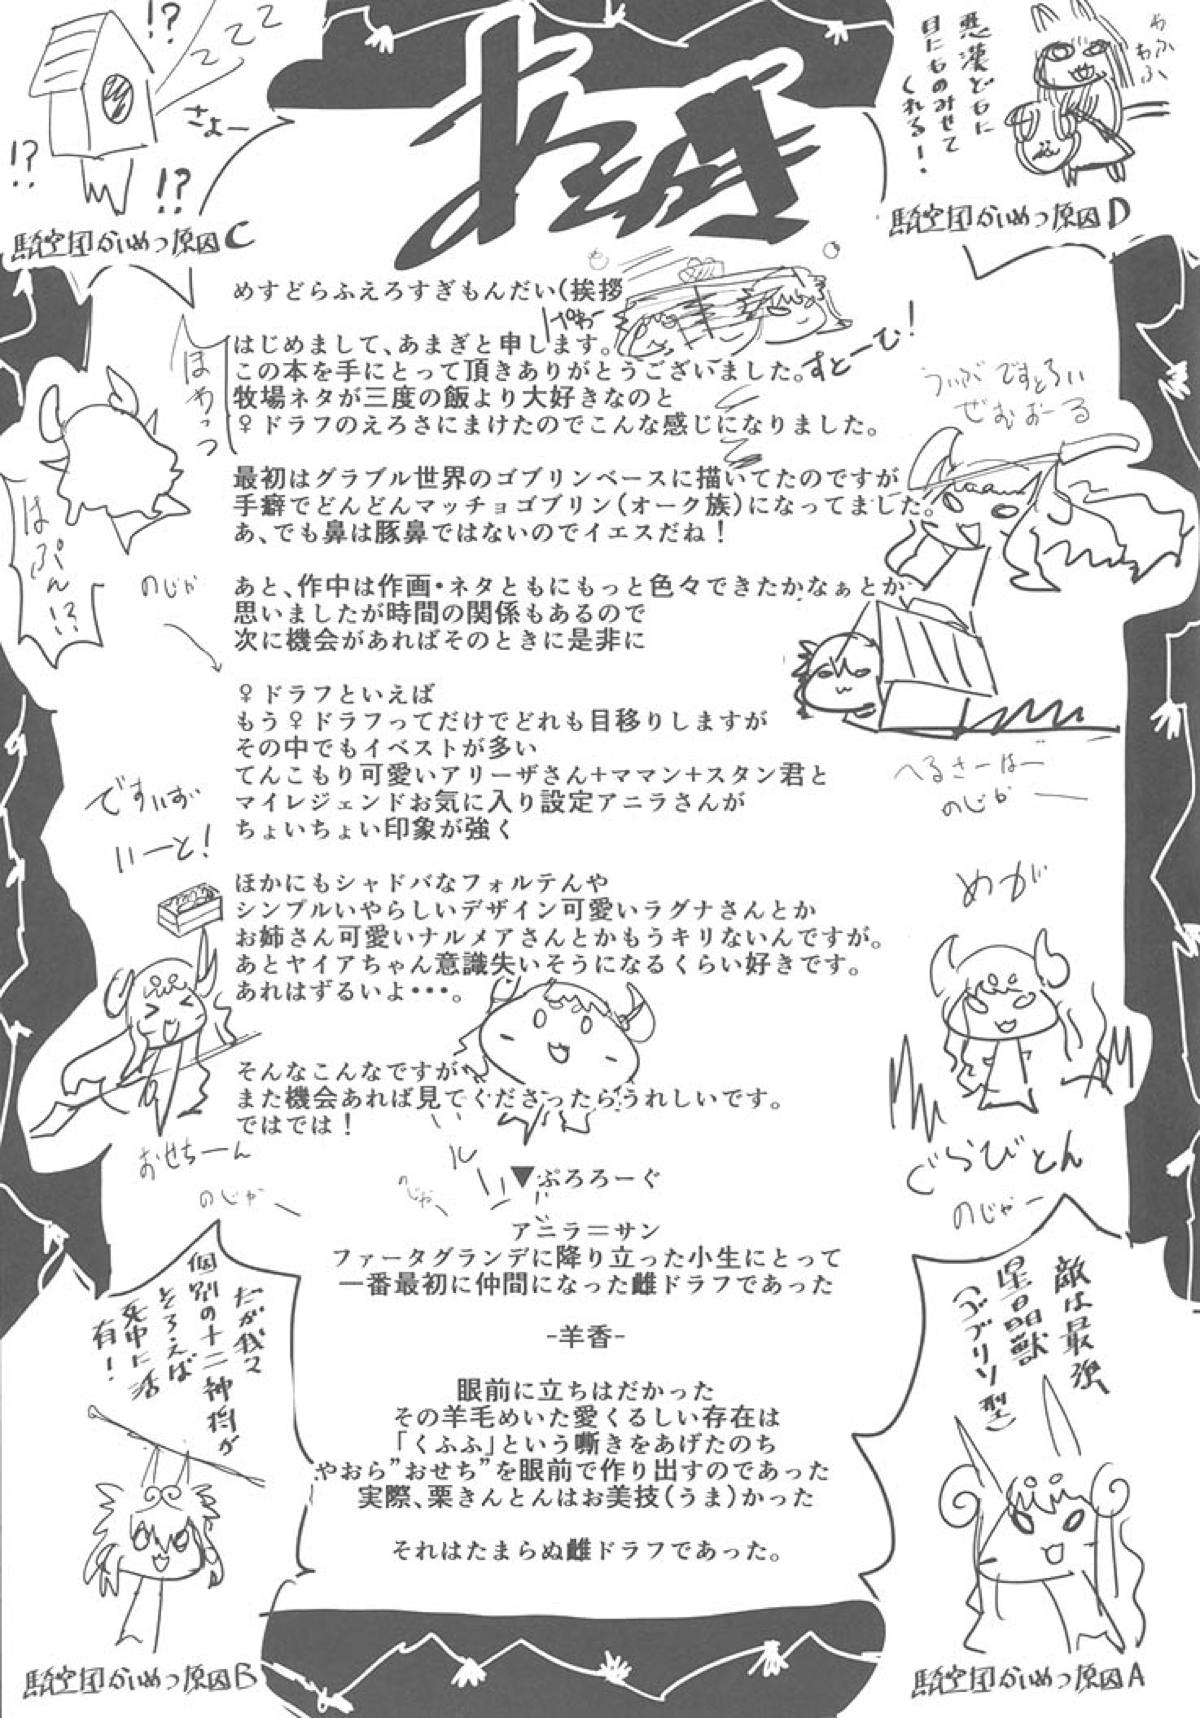 あとがき
めすどらふえろすぎもんだい(挨拶
はじめまして、あまぎと申します。
この本を手にとって頂きありがとうございました。
牧場ネタが三度の飯より大好きなのと
♀ドラフのえろさにまけたのでこんな感じになりました。
最初はグラブル世界のゴブリンベースに描いてたのですが
手癖でどんどんマッチョゴブリン(オーク族)になってました。
あ、でも鼻は豚鼻ではないのでイエスだね！
あと、作中は作画・ネタともにもっと色々できたかなぁとか
思いましたが時間の関係もあるので
次に機会があればそのときに是非に
♀ドラフといえば
もう♀ドラフってだけでどれも目移りしますが
その中でもイベストが多い
てんこもり可愛いアリーザさん+ママン+スタン君と
マイレジェンドお気に入り設定アニラさんが
ちょいちょい印象が強く
ほかにもシャドバなフォルテんや
シンプルいやらしいデザイン可愛いラグナさんとか
お姉さん可愛いナルメアさんとかもうキリないんですが。
あとヤイアちゃん意識失いそうになるくらい好きです。
あれはずるいよ・・・。
そんなこんなですが
また機会あれば見てくださったらうれしいです。
ではでは！
▼ぷろろーぐ
アニラ＝サン
ファータグランデに降り立った小生にとって
一番最初に仲間になった雌ドラフであった
-羊香-
眼前に立ちはだかった
その羊毛めいた愛くるしい存在は
「くふふ」という嘶きをあげたのち
やおら”おせち”を眼前で作り出すのであった
実際、栗きんとんはお美技(うま)かった
それはたまらぬ雌ドラフであった。
!?
ZZZ
さよー
!?
!?
騎空団かいめつ原因C
悪漢どもに
目にものみせて
くれる！
わふ
わふ
騎空団かいめつ原因D
すとーむ！
ほめっつ
はぷん!?
のじゃ
うぃぶですとろい
ぜむおーる
へるさーばー
のじゃー
ですいず
いーと！
おせちーん
のじゃー
のじゃー
めが
ぐらびとん
のじゃー
だが我々
個別の十二神将が
そろえば
死中に活
有！
騎空団かいめつ原因B
敵は最強
星晶獣
(ゴブリン型)
騎空団かいめつ原因A